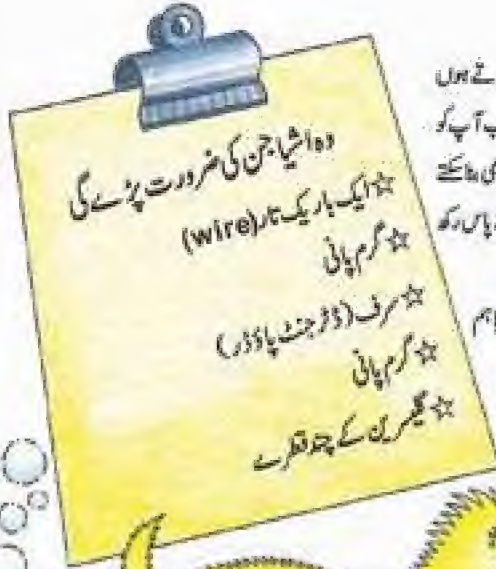 وہ اشیا جن کی ضرورت پڑے گی
☆ ایک باریک تار (wire)
☆ گرم پانی
☆ سرف (ڈٹرجنٹ پاؤڈر)
☆ گرم پانی
☆ گلیسرین کے چند قطرے
تے ہوں
پ آپ کو
بھی بنا سکتے
پاس رکھ
ہم